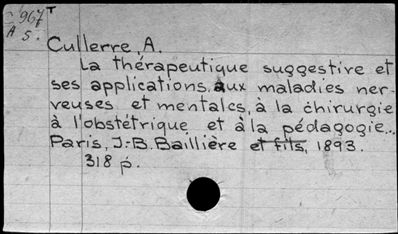 967 T
A 5.
Cullerre, A.
La thérapeutique suggestive et
ses applications aux maladies ner-
veuses et mentales, à la chirurgie
à l'obstétrique et à la pédagogie...
Paris, J.-B. Baillière et fils, 1893.
318 p.